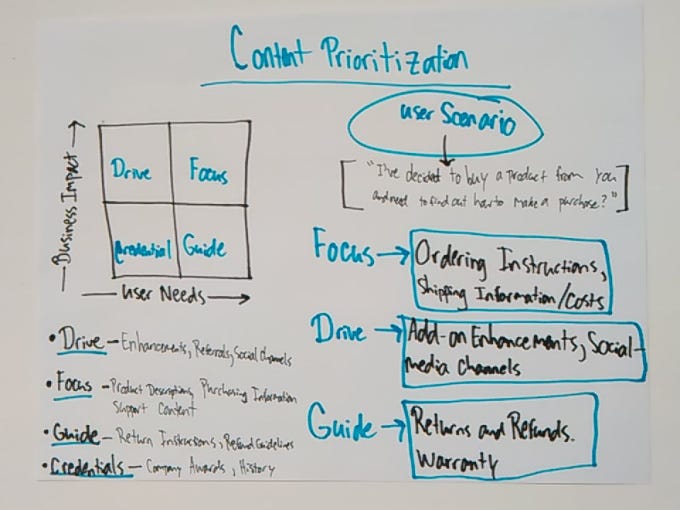 Content Prioritization
Business Impact
Drive
Focus
Credential
Guide
User Needs
• Drive - Enhancements, Referrals, Social Channels
• Focus - Product Descriptions, Purchasing Information
Support Content
• Guide - Return Instructions, Refund Guidelines
• Credentials - Company Awards, History
user Scenario
"I've decided to buy a product from you
and need to find out how to make a purchase?"
Focus → Ordering Instructions,
Shipping Information/Costs
Drive → Add-on Enhancements, Social-
media Channels
Guide → Returns and Refunds.
Warranty